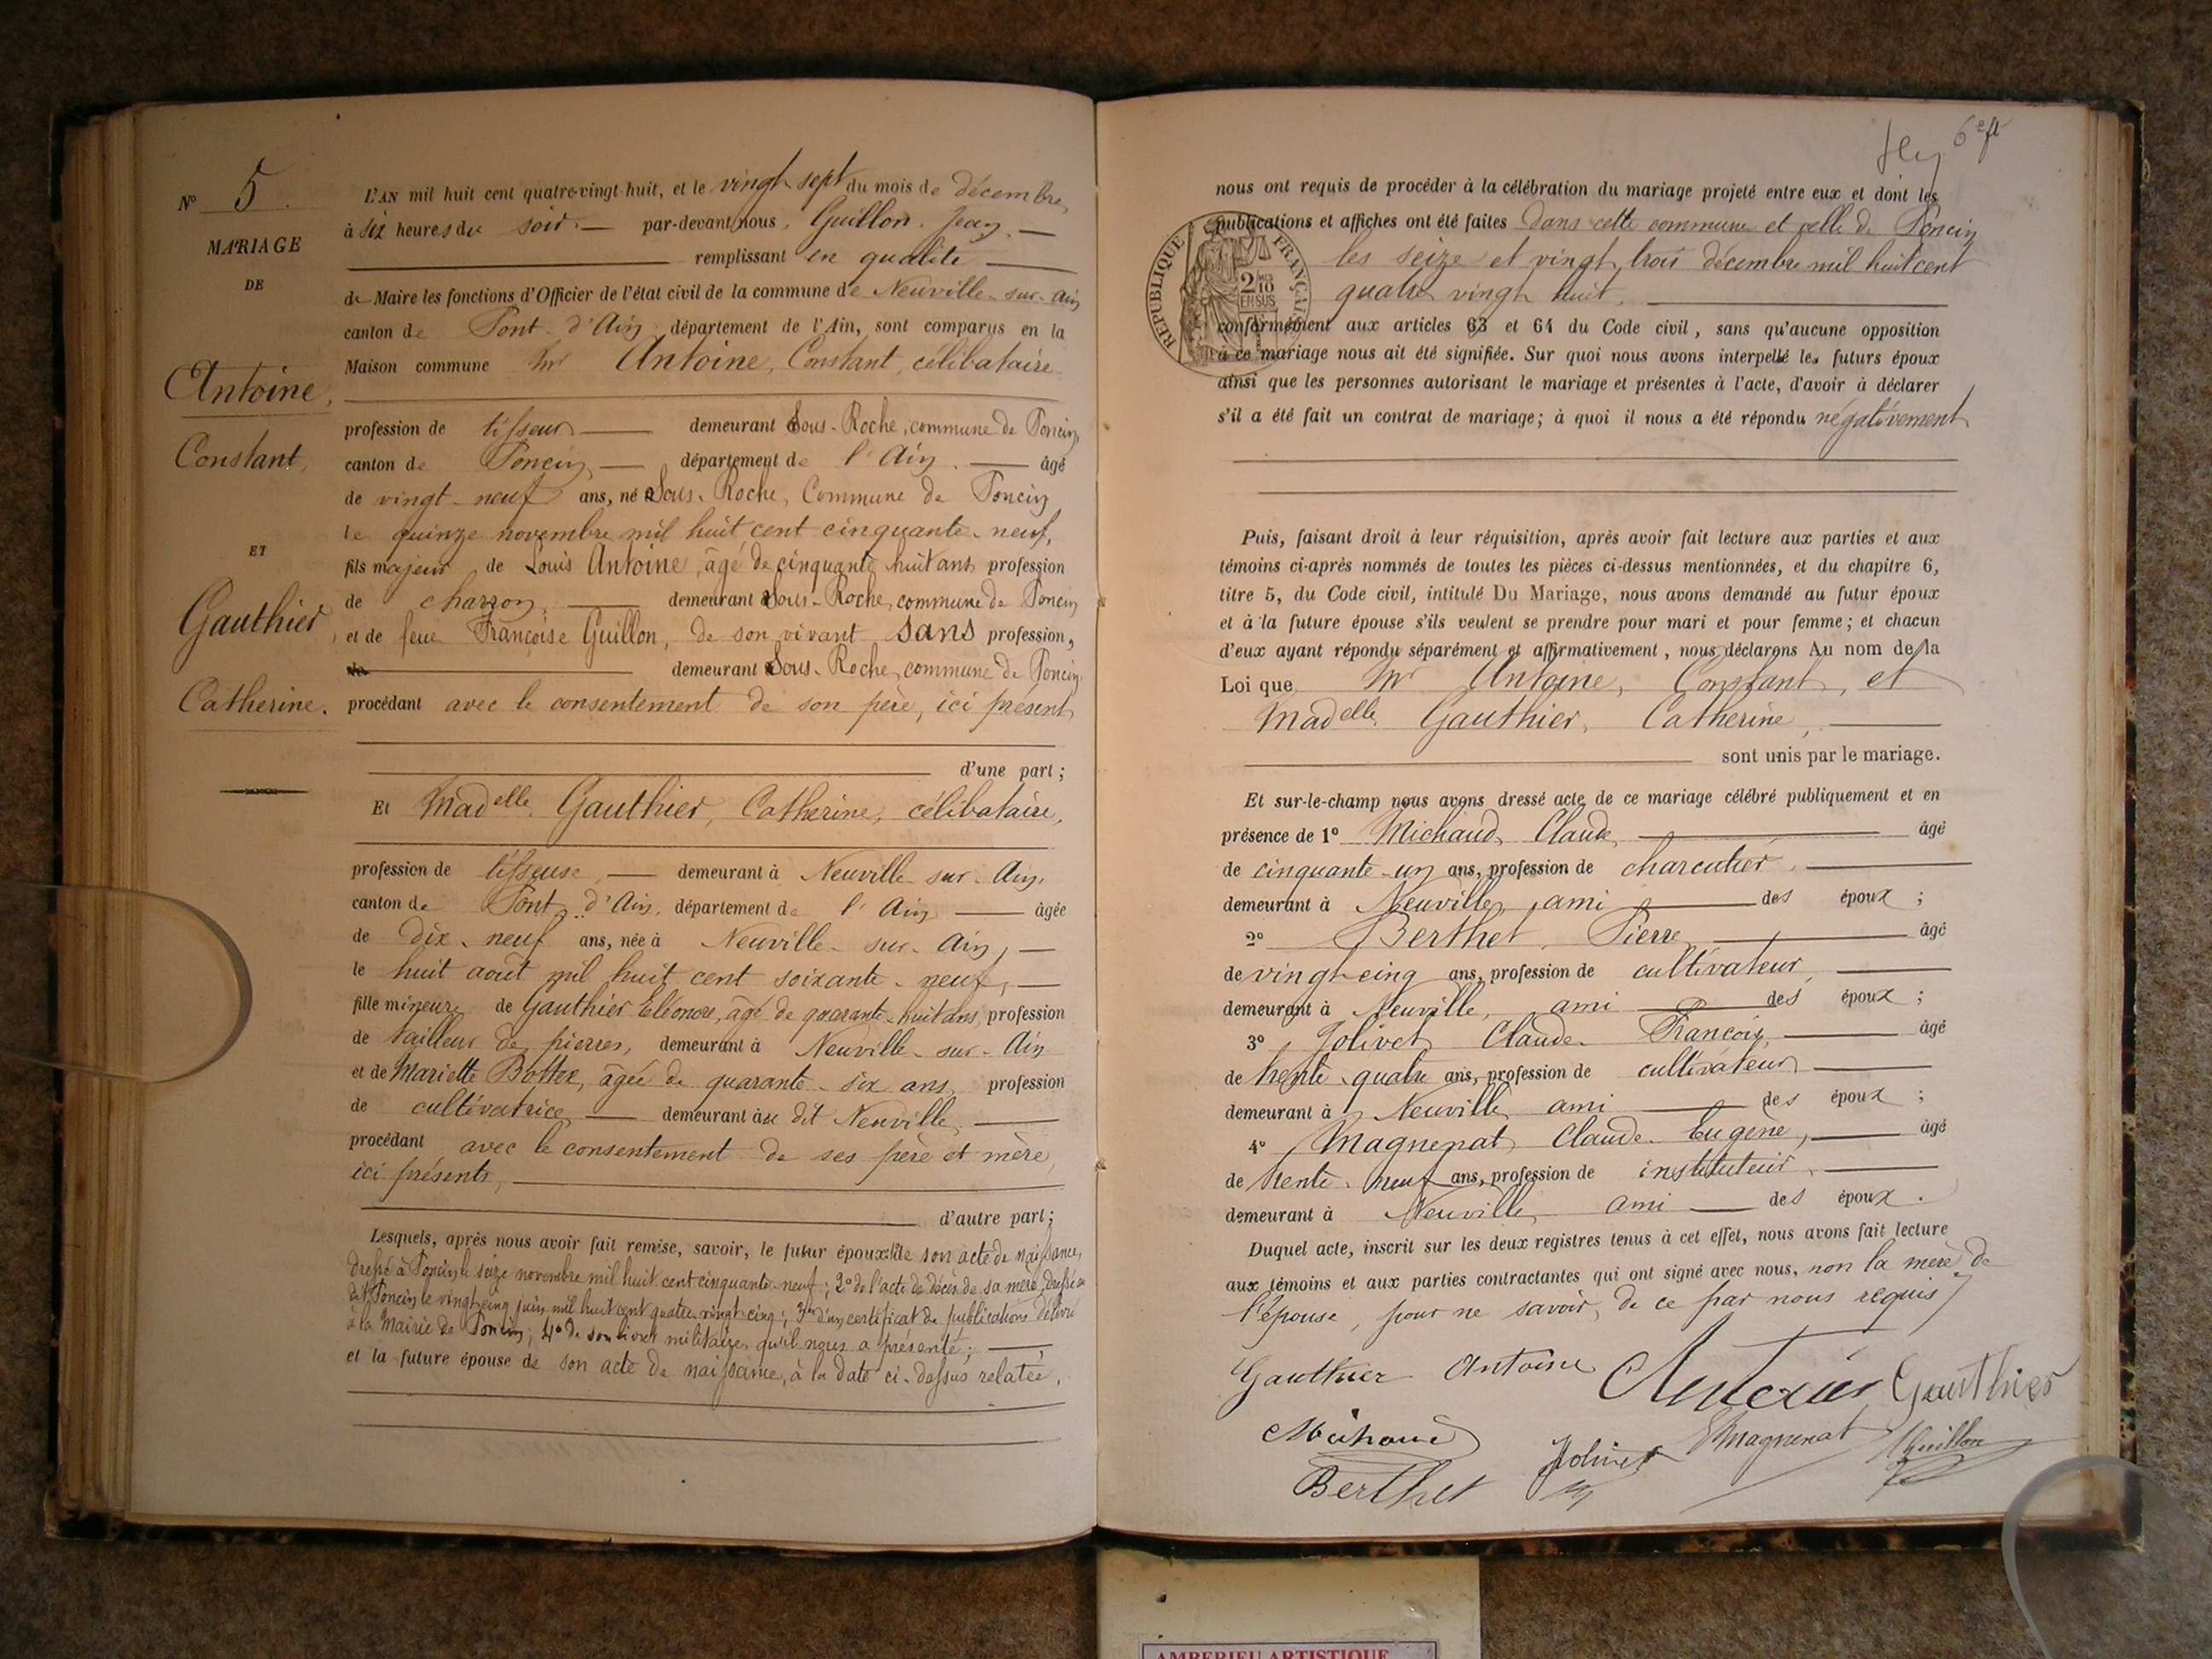 N° 5.
MARIAGE
DE
Antoine,
Constant,
ET
Gauthier,
Catherine.
L'AN mil huit cent quatre-vingt-huit, et le vingt sept du mois de décembre,
à six heures du soir. par-devant nous, Guillon, Jean,
remplissant en qualité
de Maire les fonctions d'Officier de l'état civil de la commune de Neuville-sur-Ain
canton de Pont-d'Ain département de l'Ain, sont comparus en la
Maison commune Mr Antoine, Constant, célibataire
profession de tisseur demeurant Sous-Roche, commune de Poncin,
canton de Poncin département de l'Ain. âgé
de vingt-neuf ans, né Sous-Roche, Commune de Poncin
le quinze novembre mil huit cent cinquante-neuf,
fils majeur de Louis Antoine, âgé de cinquante huit ans profession
de charron, demeurant Sous-Roche, commune de Poncin
et de feue Françoise Guillon, de son vivant sans profession,
demeurant Sous-Roche, commune de Poncin.
procédant avec le consentement de son père, ici présent,
d'une part;
Et Madelle Gauthier, Catherine, célibataire,
profession de tisseuse, demeurant à Neuville-sur-Ain,
canton de Pont-d'Ain, département de l'Ain âgée
de dix-neuf ans, née à Neuville-sur-Ain,
le huit août mil huit cent soixante-neuf,
fille mineure de Gauthier Eléonore, âgé de quarante-huit ans, profession
de tailleur de pierres, demeurant à Neuville-sur-Ain
et de Mariette Bottex, âgée de quarante-six ans, profession
de cultivatrice demeurant au dit Neuville,
procédant avec le consentement de ses père et mère,
ici présents,
d'autre part;
Lesquels, après nous avoir fait remise, savoir, le futur époux: 1° de son acte de naissance,
dressé à Poncin le seize novembre mil huit cent cinquante-neuf; 2° de l'acte de décès de sa mère, dressé au
dit Poncin le vingt cinq juin mil huit cent quatre-vingt-cinq; 3° d'un certificat de publications délivré
à la Mairie de Poncin; 4° de son livret militaire, qu'il nous a présenté;
et la future épouse de son acte de naissance, à la date ci-dessus relatée.
6e ft
nous ont requis de procéder à la célébration du mariage projeté entre eux et dont les
publications et affiches ont été faites dans cette commune et celle de Poncin
les seize et vingt trois décembre mil huit cent
quatre vingt huit,
RÉPUBLIQUE FRANÇAISE
2/10
EN SUS
conformément aux articles 63 et 64 du Code civil, sans qu'aucune opposition
à ce mariage nous ait été signifiée. Sur quoi nous avons interpellé les futurs époux
ainsi que les personnes autorisant le mariage et présentes à l'acte, d'avoir à déclarer
s'il a été fait un contrat de mariage; à quoi il nous a été répondu négativement
Puis, faisant droit à leur réquisition, après avoir fait lecture aux parties et aux
témoins ci-après nommés de toutes les pièces ci-dessus mentionnées, et du chapitre 6,
titre 5, du Code civil, intitulé Du Mariage, nous avons demandé au futur époux
et à la future épouse s'ils veulent se prendre pour mari et pour femme; et chacun
d'eux ayant répondu séparément et affirmativement, nous déclarons Au nom de la
Loi que Mr Antoine, Constant, et
Madelle Gauthier, Catherine,
sont unis par le mariage.
Et sur-le-champ nous avons dressé acte de ce mariage célébré publiquement et en
présence de 1° Michaud, Claude, âgé
de cinquante-un ans, profession de charcutier,
demeurant à Neuville, ami des époux;
2° Berthet, Pierre, âgé
de vingt-cinq ans, profession de cultivateur,
demeurant à Neuville, ami des époux;
3° Jolivet Claude-François, âgé
de trente-quatre ans, profession de cultivateur
demeurant à Neuville, ami des époux;
4° Magnenat, Claude-Eugène, âgé
de trente-neuf ans, profession de instituteur,
demeurant à Neuville, ami des époux.
Duquel acte, inscrit sur les deux registres tenus à cet effet, nous avons fait lecture
aux témoins et aux parties contractantes qui ont signé avec nous, non la mère de
l'épouse, pour ne savoir, de ce par nous requis
Gauthier Antoine Antoine Gauthier
Michaud Jolivet Magnenat Guillon
Berthet
AMBERIEU ARTISTIQUE